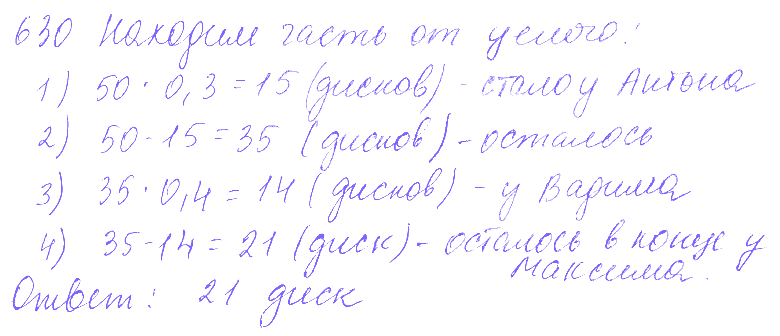 630 Находим часть от целого:
1) 50 · 0,3 = 15 (дисков) - стало у Антона
2) 50 - 15 = 35 (дисков) - осталось
3) 35 · 0,4 = 14 (дисков) - у Вадима
4) 35 - 14 = 21 (диск) - осталось в конце у
Максима.
Ответ: 21 диск